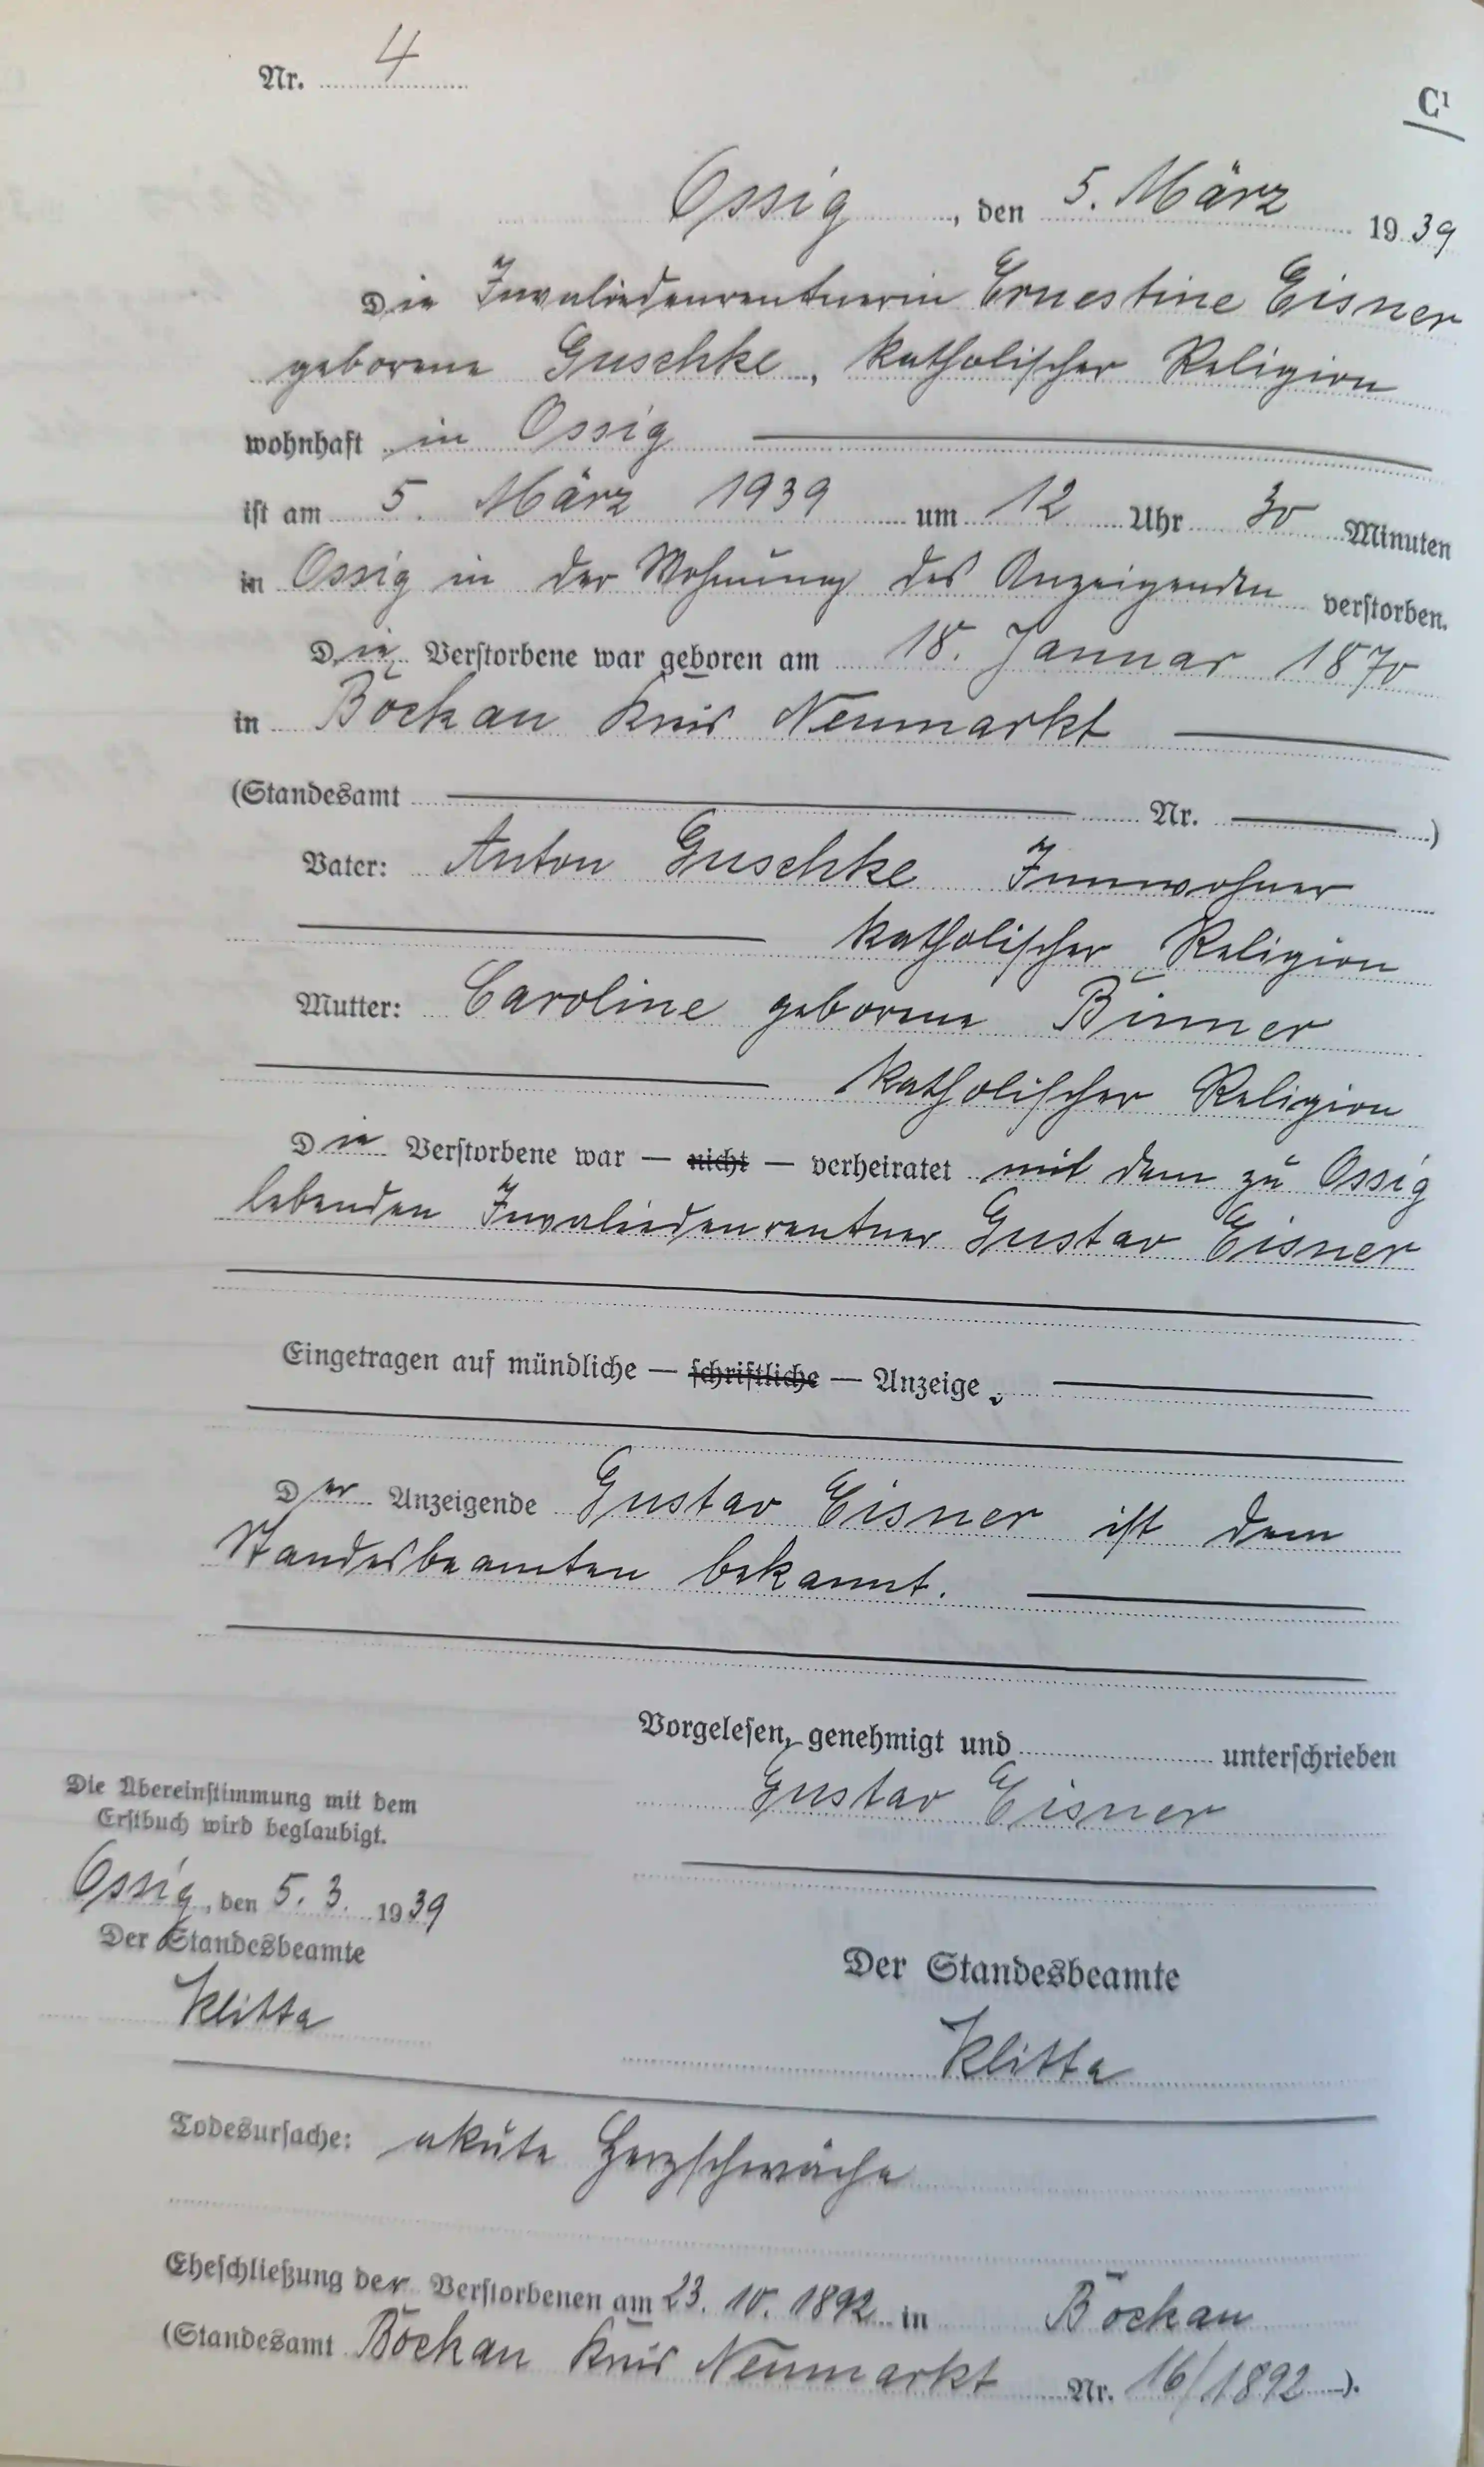 Nr. 4
C1
Ossig, den 5. März 1939
Die Invaliedenrentnerin Ernestine Eisner
geborene Guschke, katholischer Religion
wohnhaft in Ossig
ist am 5. März 1939 um 12 Uhr 30 Minuten
in Ossig in der Wohnung des Anzeigenden verstorben.
Die Verstorbene war geboren am 18. Januar 1870
in Bockau Kreis Neumarkt
(Standesamt Nr. )
Vater: Anton Guschke Innwohner
katholischer Religion
Mutter: Caroline geborene
katholischer Religion
Die Verstorbene war — nicht — verheiratet mit dem zu Ossig
lebenden Invaliedenrentner Gustav Eisner
Eingetragen auf mündliche — schriftliche — Anzeige.
Der Anzeigende Gustav Eisner ist dem
Standesbeamten bekannt.
Vorgelesen, genehmigt und unterschrieben
Gustav Eisner
Die Übereinstimmung mit dem
Erstbuch wird beglaubigt.
Ossig, den 5. 3. 1939
Der Standesbeamte
Klitta
Der Standesbeamte
Klitta
Todesursache: akute Herzschwäche
Eheschließung der Verstorbenen am 23. 10. 1892 in Bockau
(Standesamt Bockau Kreis Neumarkt Nr. 16/1892).